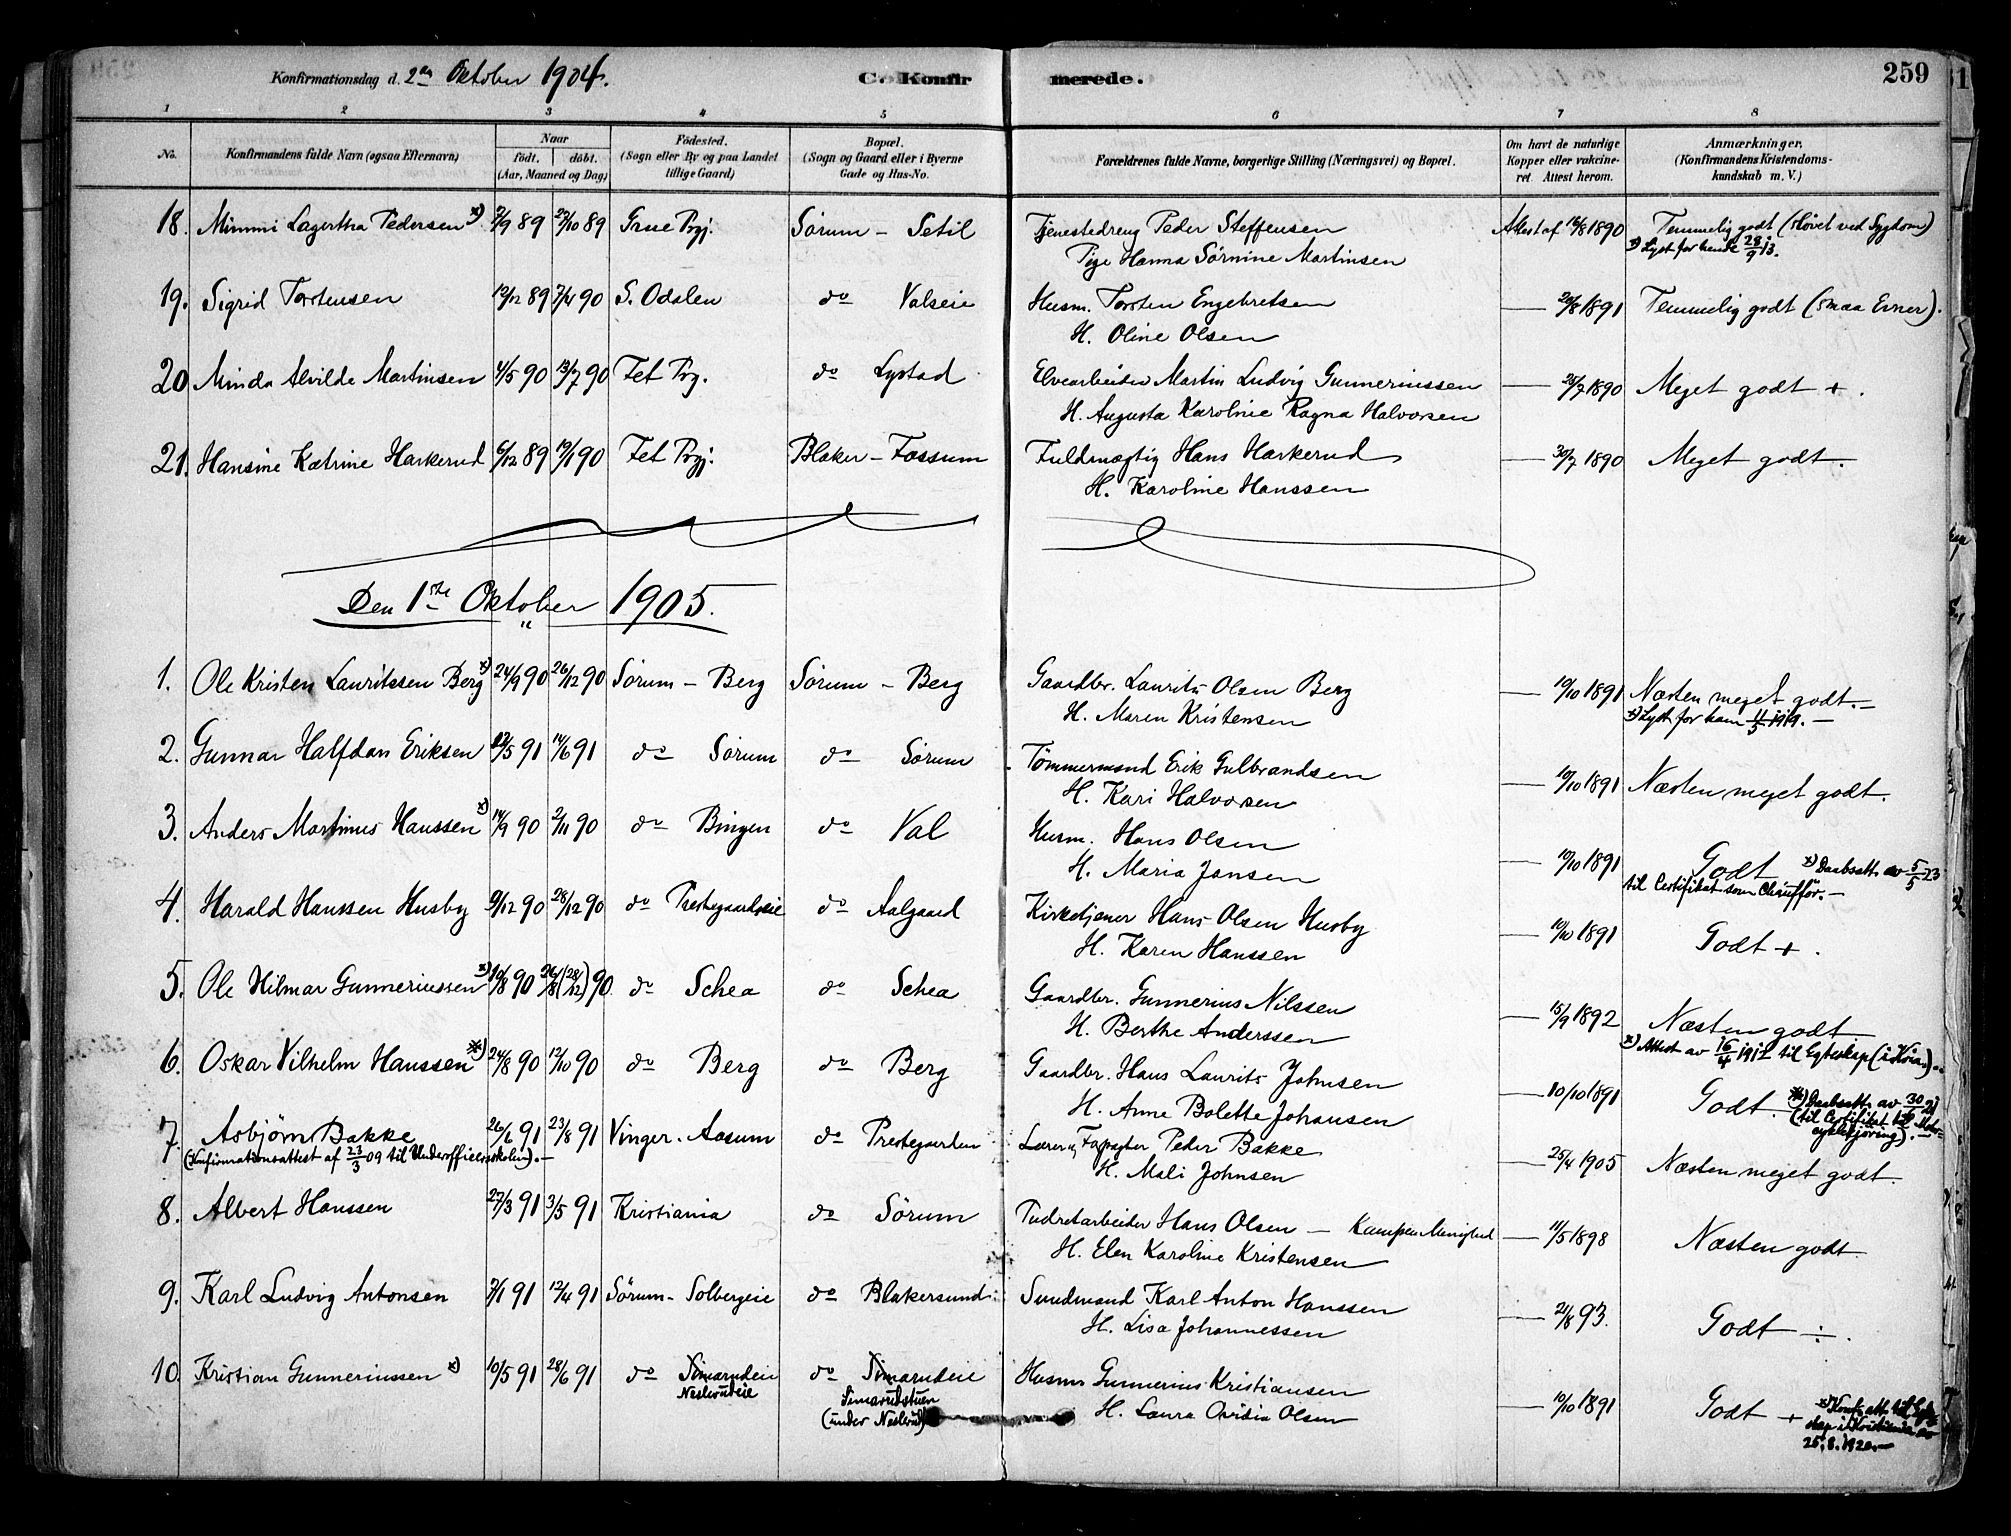 Konfirmationsdag d. 2den Oktober 1904. C. Konfirmerede. 259
1 2 3 4 5 6 7 8
No. Konfirmandens fulde Navn (ogsaa Efternavn) Naar født. døbt. (Aar, Maaned og Dag) Fødested. (Sogn eller By og paa Landet tillige Gaard) Bopæl. (Sogn og Gaard eller i Byerne Gade og Hus-No. Forældrenes fulde Navne, borgerlige Stilling (Næringsvei) og Bopæl. Om havt de naturlige Kopper eller vakcineret. Attest herom. Anmærkninger. (Konfirmandens Kristendomskundskab m. V.)
18. Mimmi Lagertha Pedersen x) 7/9 89 27/10 89 Grue Prgj. Sørum - Setil Tjenestedreng Peder Steffensen Attest af 18/8 1890 Temmelig godt (sløvet ved Sygdom)
Pige Hanna Sørnine Martinsen x) Lyst for hende 28/9 13.
19. Sigrid Torstensen 12/12 89 7/4 90 S. Odalen do Valseie Husm. Torsten Engebretsen — 20/8 1891 Temmelig godt (smaa Evner).
H. Oline Olsen
20 Minda Alvilde Martinsen 4/5 90 13/7 90 Fet Prg. do Lystad Elvearbeider Martin Ludvig Gunneriussen — 25/7 1890 Meget godt + .
H. Augusta Karoline Ragna Halvorsen
21. Hansine Katrine Harkerud 6/12 89 19/1 90 Fet Prgj. Blaker - Fossum Fuldmægtig Hans Harkerud — 30/7 1890 Meget godt.
H. Karoline Hanssen
Den 1ste Oktober 1905.
1. Ole Kristen Lauritssen Berg x) 24/9 90 26/12 90 Sørum - Berg Sørum - Berg Gaardbr. Laurits Olsen Berg — 10/10 1891 Næsten meget godt. —
H. Maren Kristensen x) Lyst for ham 11/5 1919. —
2. Gunnar Halfdan Eriksen 12/5 91 14/6 91 do Sørum do Sørum Tømmermand Erik Gulbrandsen — 10/10 1891 Næsten meget godt.
H. Kari Halvorsen
3. Anders Martinus Hanssen x) 14/9 90 2/11 90 do Bingen do Val Husm. Hans Olsen — 10/10 1891 Godt x) Daabsatt. av 5/5 23
H. Maria Jansen til Certifikat som Chauffør. —
4. Harald Hanssen Husby 9/12 90 28/12 90 do Prestegaardseie do Aalgaard Kirketjener Hans Olsen Husby — 10/10 1891 Godt + .
H. Karen Hanssen
5. Ole Hilmar Gunneriussen x) 10/8 90 26/8 (28/12) 90 do Schea do Schea Gaardbr. Gunnerius Nilssen — 15/9 1892 Næsten godt
H. Berthe Anderssen x) Attest av 16/4 1917 til Egteskap (i Kria). —
6. Oskar Vilhelm Hanssen x) 24/8 90 12/10 90 do Berg do Berg Gaardbr. Hans Laurits Johnsen — 10/10 1891 Godt. x) Daabsatt. av 30/
H. Anne Bolette Johansen (til Certifikat til Motorcyklekjøring). —
7. Asbjørn Bakke 26/6 91 23/8 91 Vinger. Aasum do Prestegaarden Lærer Peder Bakke — 25/4 1905 Næsten meget godt.
(Konfirmationsattest af 23/3 09 til Underofficersskolen). — H. Mali Johnsen
8. Albert Hanssen 27/3 91 3/5 91 Kristiania do Sørum Hans Olsen — Kampen Menighed — 11/5 1898 Næsten godt
H. Elen Karoline Kristensen
9. Karl Ludvig Antonsen 7/1 91 12/4 91 Sørum - Solbergeie do Blakersund: Sundmand Karl Anton Hanssen — 21/8 93. Godt ÷ .
H. Lisa Johannessen
10. Kristian Gunneriussen x) 10/5 91 28/6 91 do Simarudeie do Simarudeie Husm Gunnerius Kristiansen — 10/10 1891 Godt + x) Konf. att. til Egteskap i Kristiania av 25.8.1920. —
Neslerudeie Simarudstuen (under Neslerud) H. Laura Ovidia Olsen